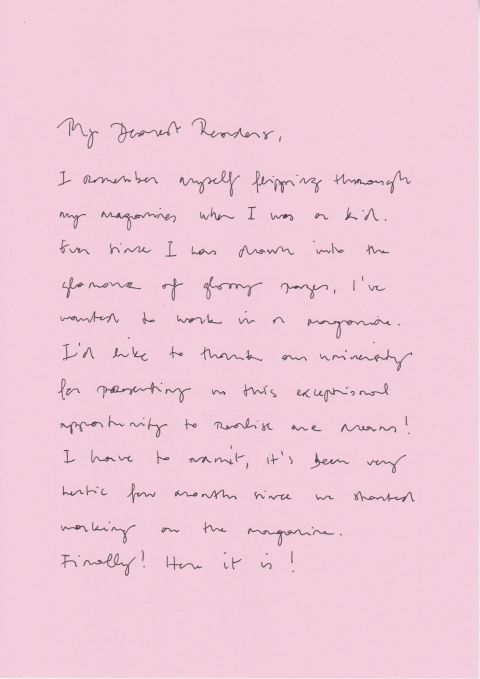 My Dearest Readers,
I remember myself flipping through
my magazines when I was a kid.
Ever since I was drawn into the
glamour of glossy pages, I've
wanted to work in a magazine.
I'd like to thank our university
for presenting us this exceptional
opportunity to realise our dreams!
I have to admit, it's been very
hectic few months since we started
working on the magazine.
Finally! Here it is!